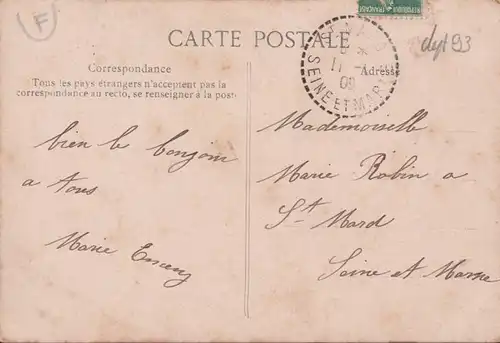 F
CARTE POSTALE
dyt 93
ST MARD
11
09
SEINE ET MARNE
Correspondance
Tous les pays étrangers n'acceptent pas la
correspondance au recto, se renseigner à la poste
Adresse
bien le bonjour
a tous
Marie
Mademoiselle
Marie Robin a
St Mard
Seine et Marne